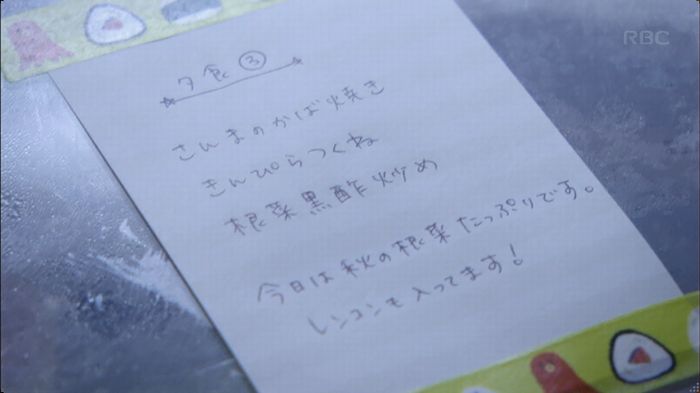 RBC
夕食③
さんまのかば焼き
きんぴらつくね
根菜黒酢炒め
今日は秋の根菜たっぷりです。
レンコンも入ってます!